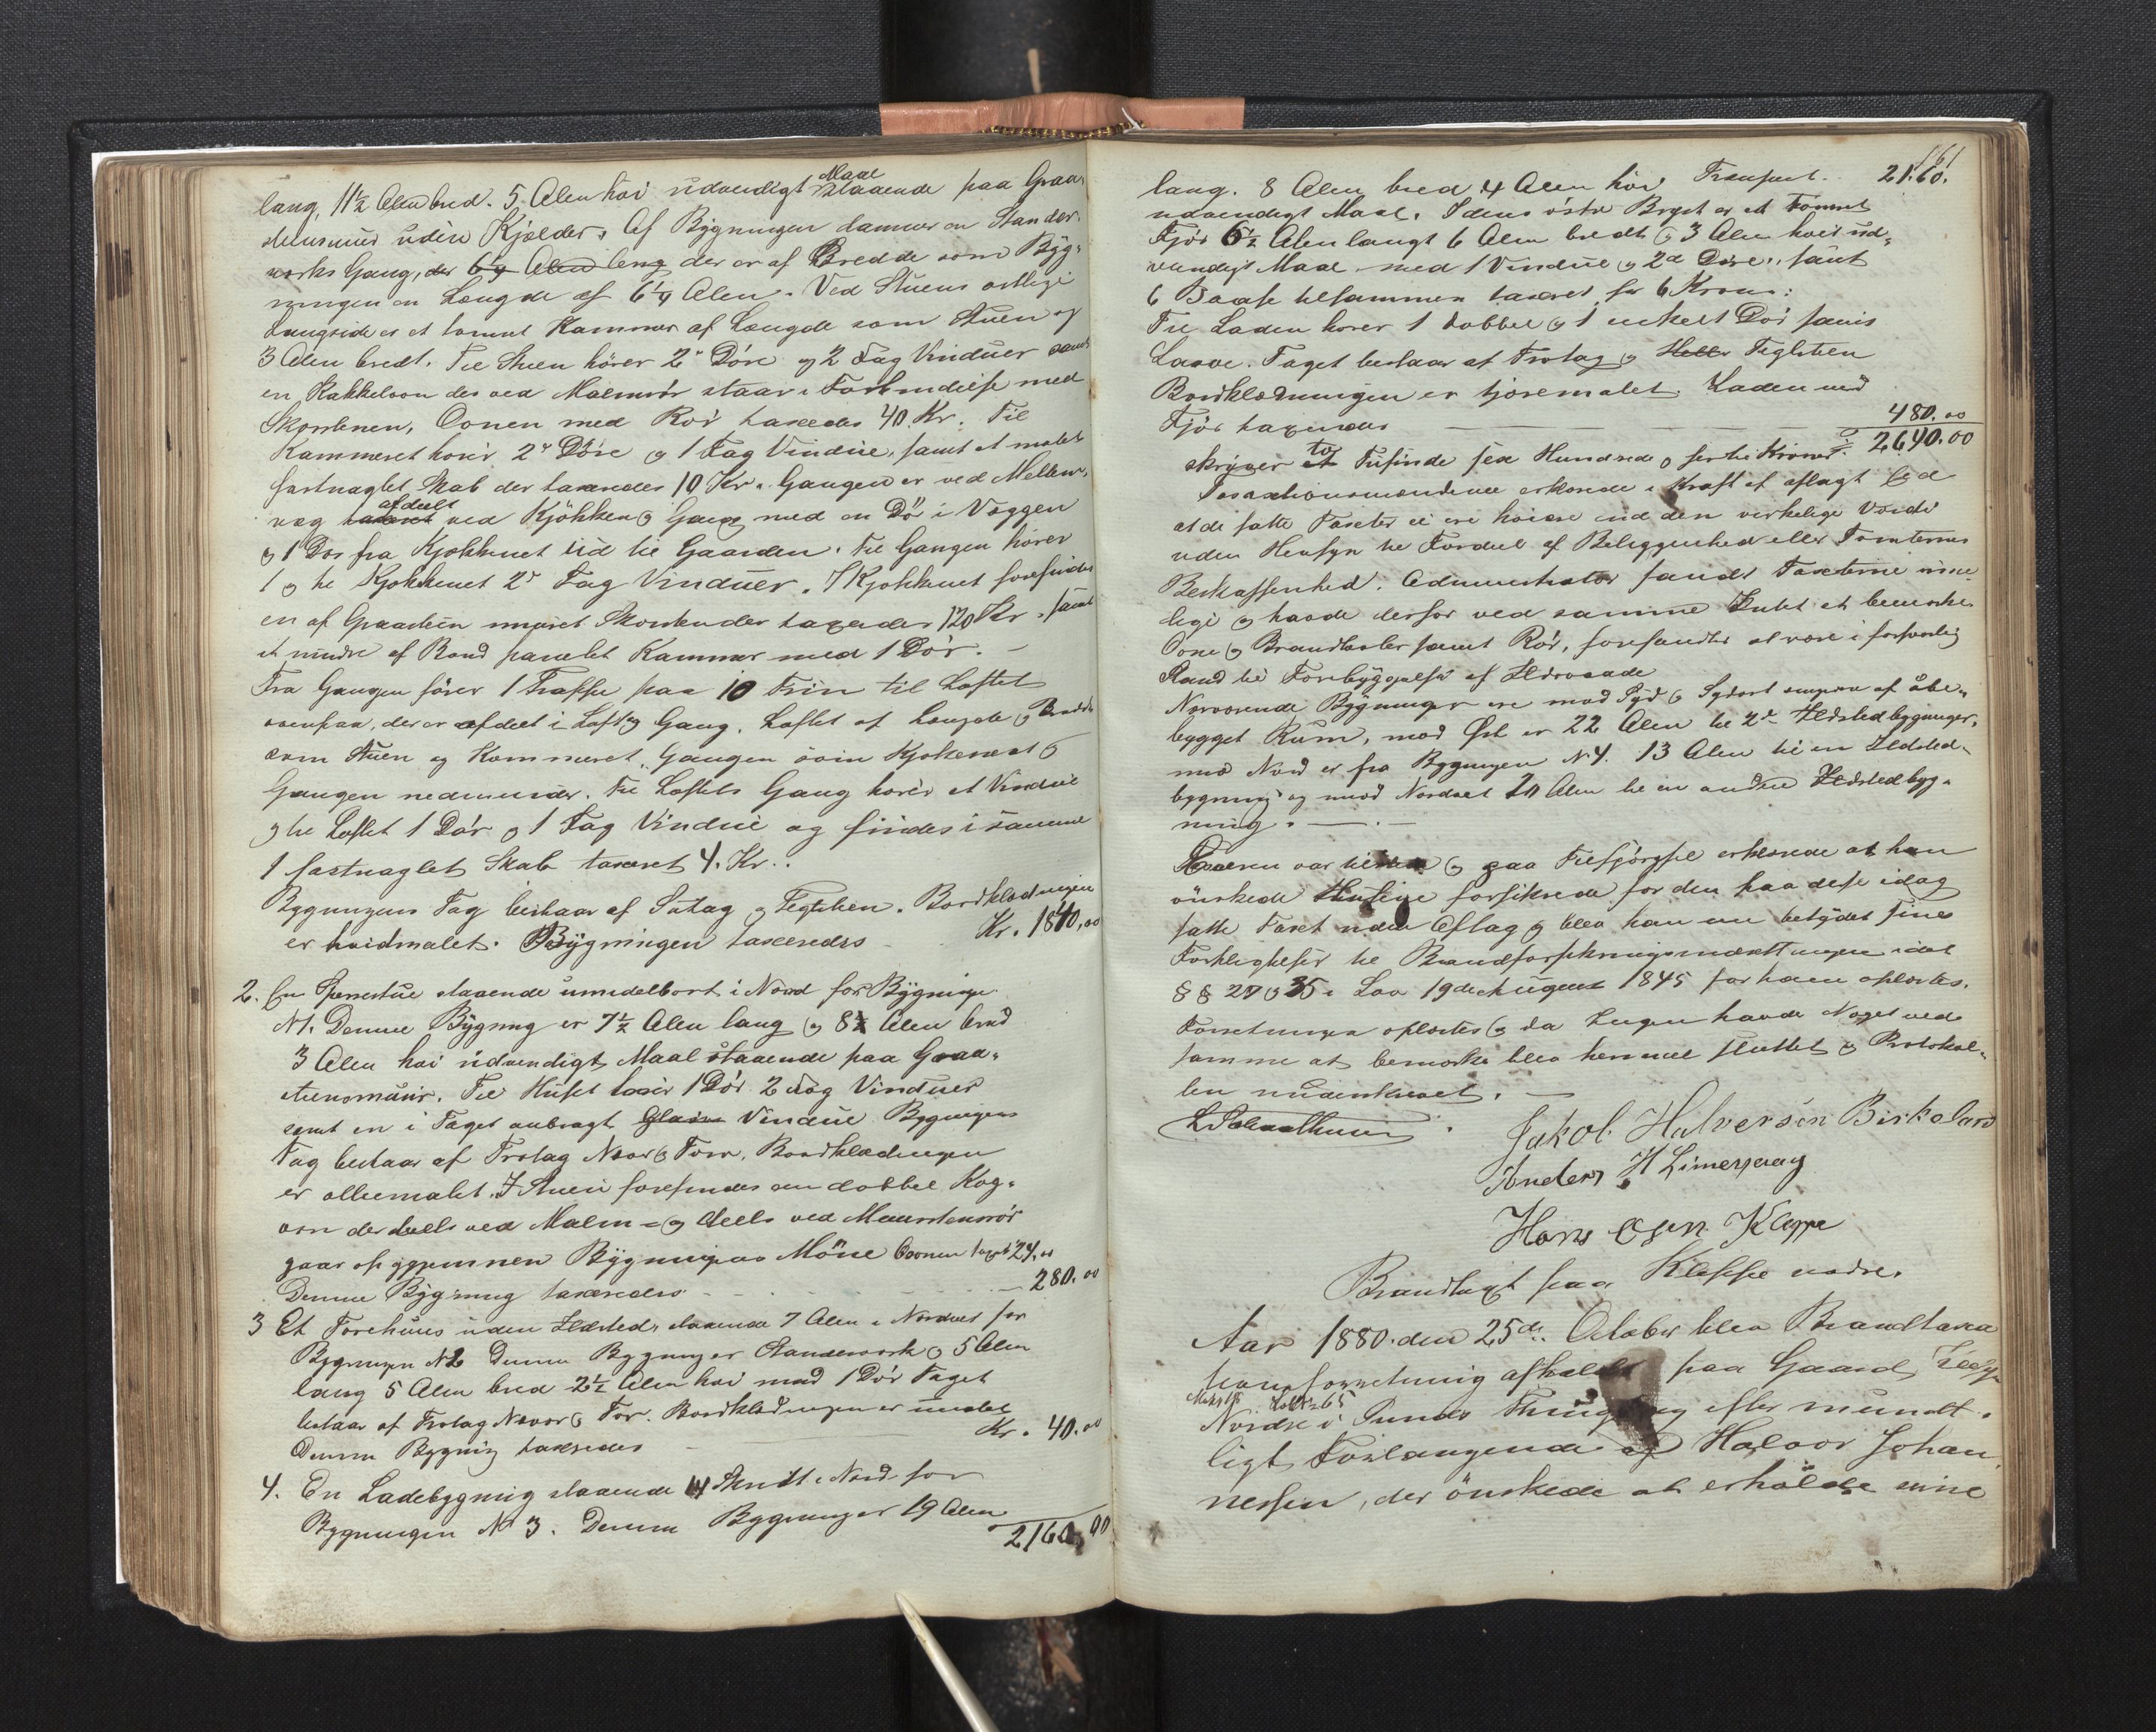 lang, 11½ Alen bred. 5 Alen høi udvendigt Maal staaende paa Graa-
steensmuur uden Kjelder. Af Bygningen danner en Stander-
værks Gang, der 6¼ Alen lang der er af Bredde som Byg-
ningen en Længde af 6¼ Alen. Ved Stuens østlige
Langside er et tømret Kammer af Længde som Stuen og
3 Alen bredt. Til Stuen hører 2de Døre og 2 Fag Vinduer samt
en Kakkelovn der ved Malmrør staar i Forbindelse med
Skorstenen, Ovnen med Rør taxeredes 40 Kr. Til
Kammeret hører 2de Døre og 1 Fag Vindue, samt et malet
fastnaglet Skab der taxeredes 10 Kr. Gangen er ved Mellem-
væg afdeelt ved Kjøkken og Gang med en Dør i Væggen
og 1 Dør fra Kjøkkenet ud til Gaarden. Til Gangen hører
1 og til Kjøkkenet 2de Fag Vinduer. I Kjøkkenet forefindes
en af Graasteen muret Skorsten der taxeredes 120 Kr. samt
et mindre af Bord panelet Kammer med 1 Dør. —
Fra Gangen fører 1 Trappe paa 10 Trin til Loftet
ovenpaa, der er afdelt i Loft og Gang. Loftet af Længde og Bredde
som Stuen og Kammeret, Gangen som Kjøkkenet og
Gangen nedenunder. Til Loftets Gang hører et Vindue
og til Loftet 1 Dør og 1 Fag Vindue og findes i samme
1 fastnaglet Skab taxeret 4. Kr..
Bygningens Tag bestaar af Sutag og Teglsten. Bordklædningen
er hvidmalet. Bygningen taxeredes Kr. 1840,00
2. En staaende umidelbart i Nord for Bygningen
N1. Denne Bygning er 7½ Alen lang og 8½ Alen bred
3 Alen høi udvendigt Maal staaende paa Graa-
steensmuur. Til Huset hører 1 Dør 2 Fag Vinduer
samt en i Taget anbragt Vindue Bygningens
Tag bestaar af Trotag Næver og Torv. Bordklædningen
er olliemalet. I Stuen forefindes en dobbel Kog-
ovn der deels ved Malm- og deels ved Muurstensrør
gaar op gjennem Bygningens Møne Ovnen taxert 24,00
Denne Bygning taxeredes 280.00
3 Et Torvhuus uden Ildsted, staaende 7 Alen i Nordvest for
Bygningen N2 Denne Bygning er Standerværk og 5 Alen
lang 5 Alen bred 2½ Alen høi med 1 Dør Taget
bestaar af Trotag Næver og Torv. Bordklædningen er umalet
Denne Bygning taxeredes — Kr. 40.00
4. En Ladebygning staaende 14 Skridt i Nord for
Bygningen No 3. Denne Bygning er 19 Alen
2160,00
161
lang. 8 Alen bred 4 Alen høi Transport. 2160.
udvendigt Maal. I dens østre Bryst er et Tømret
Fjøs 6½ Alen langt 6 Alen bredt og 3 Alen høit ud-
vendigt Maal med 1 Vindue og 2de Døre, samt
6 Baase tilsammen taxeret for 6 Kroner:
Til Laden hører 1 dobbel og 1 enkelt Dør samt
Laave. Taget bestaar af Trotag og Heller Teglsten
Bordklædningen er tjæremalet Laden med
Fjøs taxeredes — 480.00
skriver to Tusinde sex Hundrede og førti Kroner. 2640.00
Taxationsmændene erklærede i Kraft af aflagt Eed
at de satte Taxter ei ere høiere end den virkelige Værdi
uden Hensyn til Fordeel af Beliggenhed eller Tomternes
Beskaffenhed. Administrator fandt Taxterne rime-
lige og havde derfor ved samme Intet at bemærke
Ovne og Brandtavler samt Rør, forefandtes at være i forsvarlig
Stand til Forebyggelse af Ildsvaade
Nærværende Bygninger ere mod Syd og Sydost omgiven af åbe-
bygget Rum, mod Øst er 22 Alen til 2de Ildstedbygninger,
mod Nord er fra Bygningen N4. 13 Alen til en Ildsted-
bygning og mod Nordvest 20 Alen til en anden Ildstedbyg-
ning. — . —
Eieren var tilstede og paa Tilspørgsel erklærede at han
ønskede Husene forsikrede for den paa dese idag
satte Taxt uden Aftag og blev han nu betydet sine
Forpligtelser til Brandforsikringsindretningen idet
§ § 27 og 35 i Lov 19de August 1845 for ham oplæstes.
Forretningen oplæstes og da Ingen havde Noget ved
samme at bemærke blev hermed sluttet og Protokol-
len underskrevet. —
Jakob Halversen Birkeland
Anders H
Hans Olsen Kleppe
Brandtaxt paa Kleppe nedre.
Aar 1880. den 25de. October blev Brandtaxa
tionsforretning afholdt paa Gaard Kleppe
Matr N Løbe N 65
Nordre i Sunds Thinglag efter mundt-
ligt Forlangende af Halvor Johan-
nessen, der ønskede at erholde sine